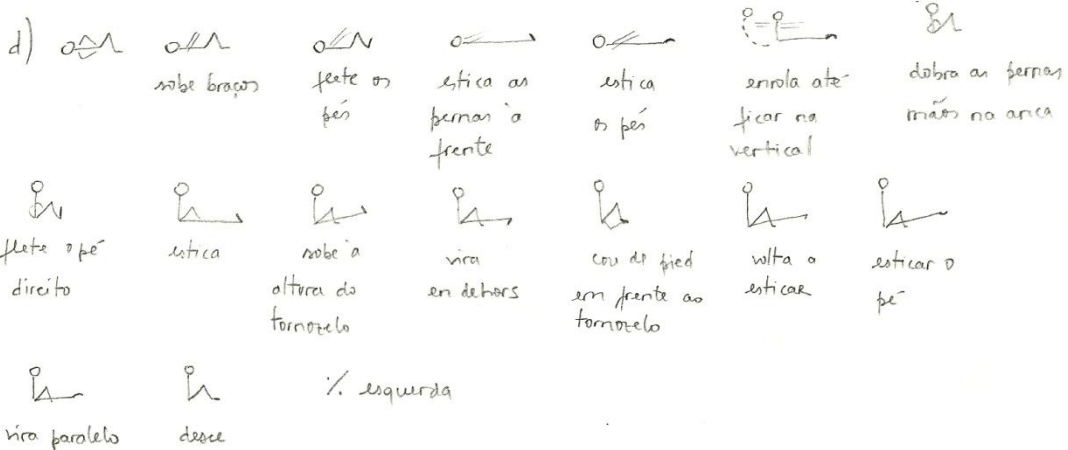 d)
sobe braços
flete os
pés
estica as
pernas à
frente
estica
os pés
enrola até
ficar na
vertical
dobra as pernas
mãos na anca
flete o pé
direito
estica
sobe à
altura do
tornozelo
vira
en dehors
cou de pied
em frente ao
tornozelo
volta a
esticar
esticar o
pé
vira paralelo
desce
٪ esquerda